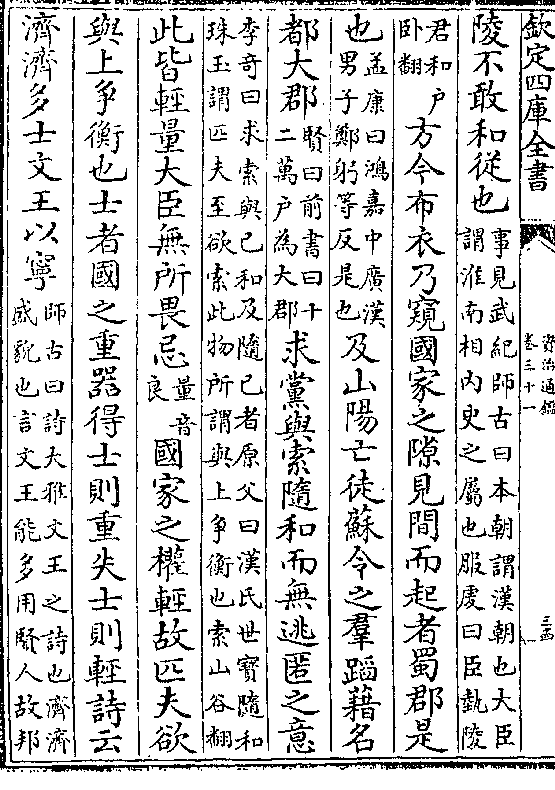 欽定四庫全書
資治通鑑
卷三十一
三四
陵不敢和從也
事見武紀師古曰本朝謂漢朝也大臣
謂淮南相內史之屬也服虔曰臣埶陵
君和戶
卧翻
方今布衣乃窺國家之隙見間而起者蜀郡是
也
孟康曰鴻嘉中廣漢
男子鄭躬等反是也
及山陽亡徒蘇令之羣蹈藉名
都大郡
賢曰前書曰十
二萬戶為大郡
求黨與索隨和而無逃匿之意
李奇曰求索與己和及隨己者原父曰漢氏世寶隨和
珠玉謂匹夫至欲索此物所謂與上爭衡也索山谷翻
此皆輕量大臣無所畏忌
量音
良
國家之權輕故匹夫欲
與上爭衡也士者國之重器得士則重失士則輕詩云
濟濟多士文王以寧
師古曰詩大雅文王之詩也濟濟
盛貌也言文王能多用賢人故邦